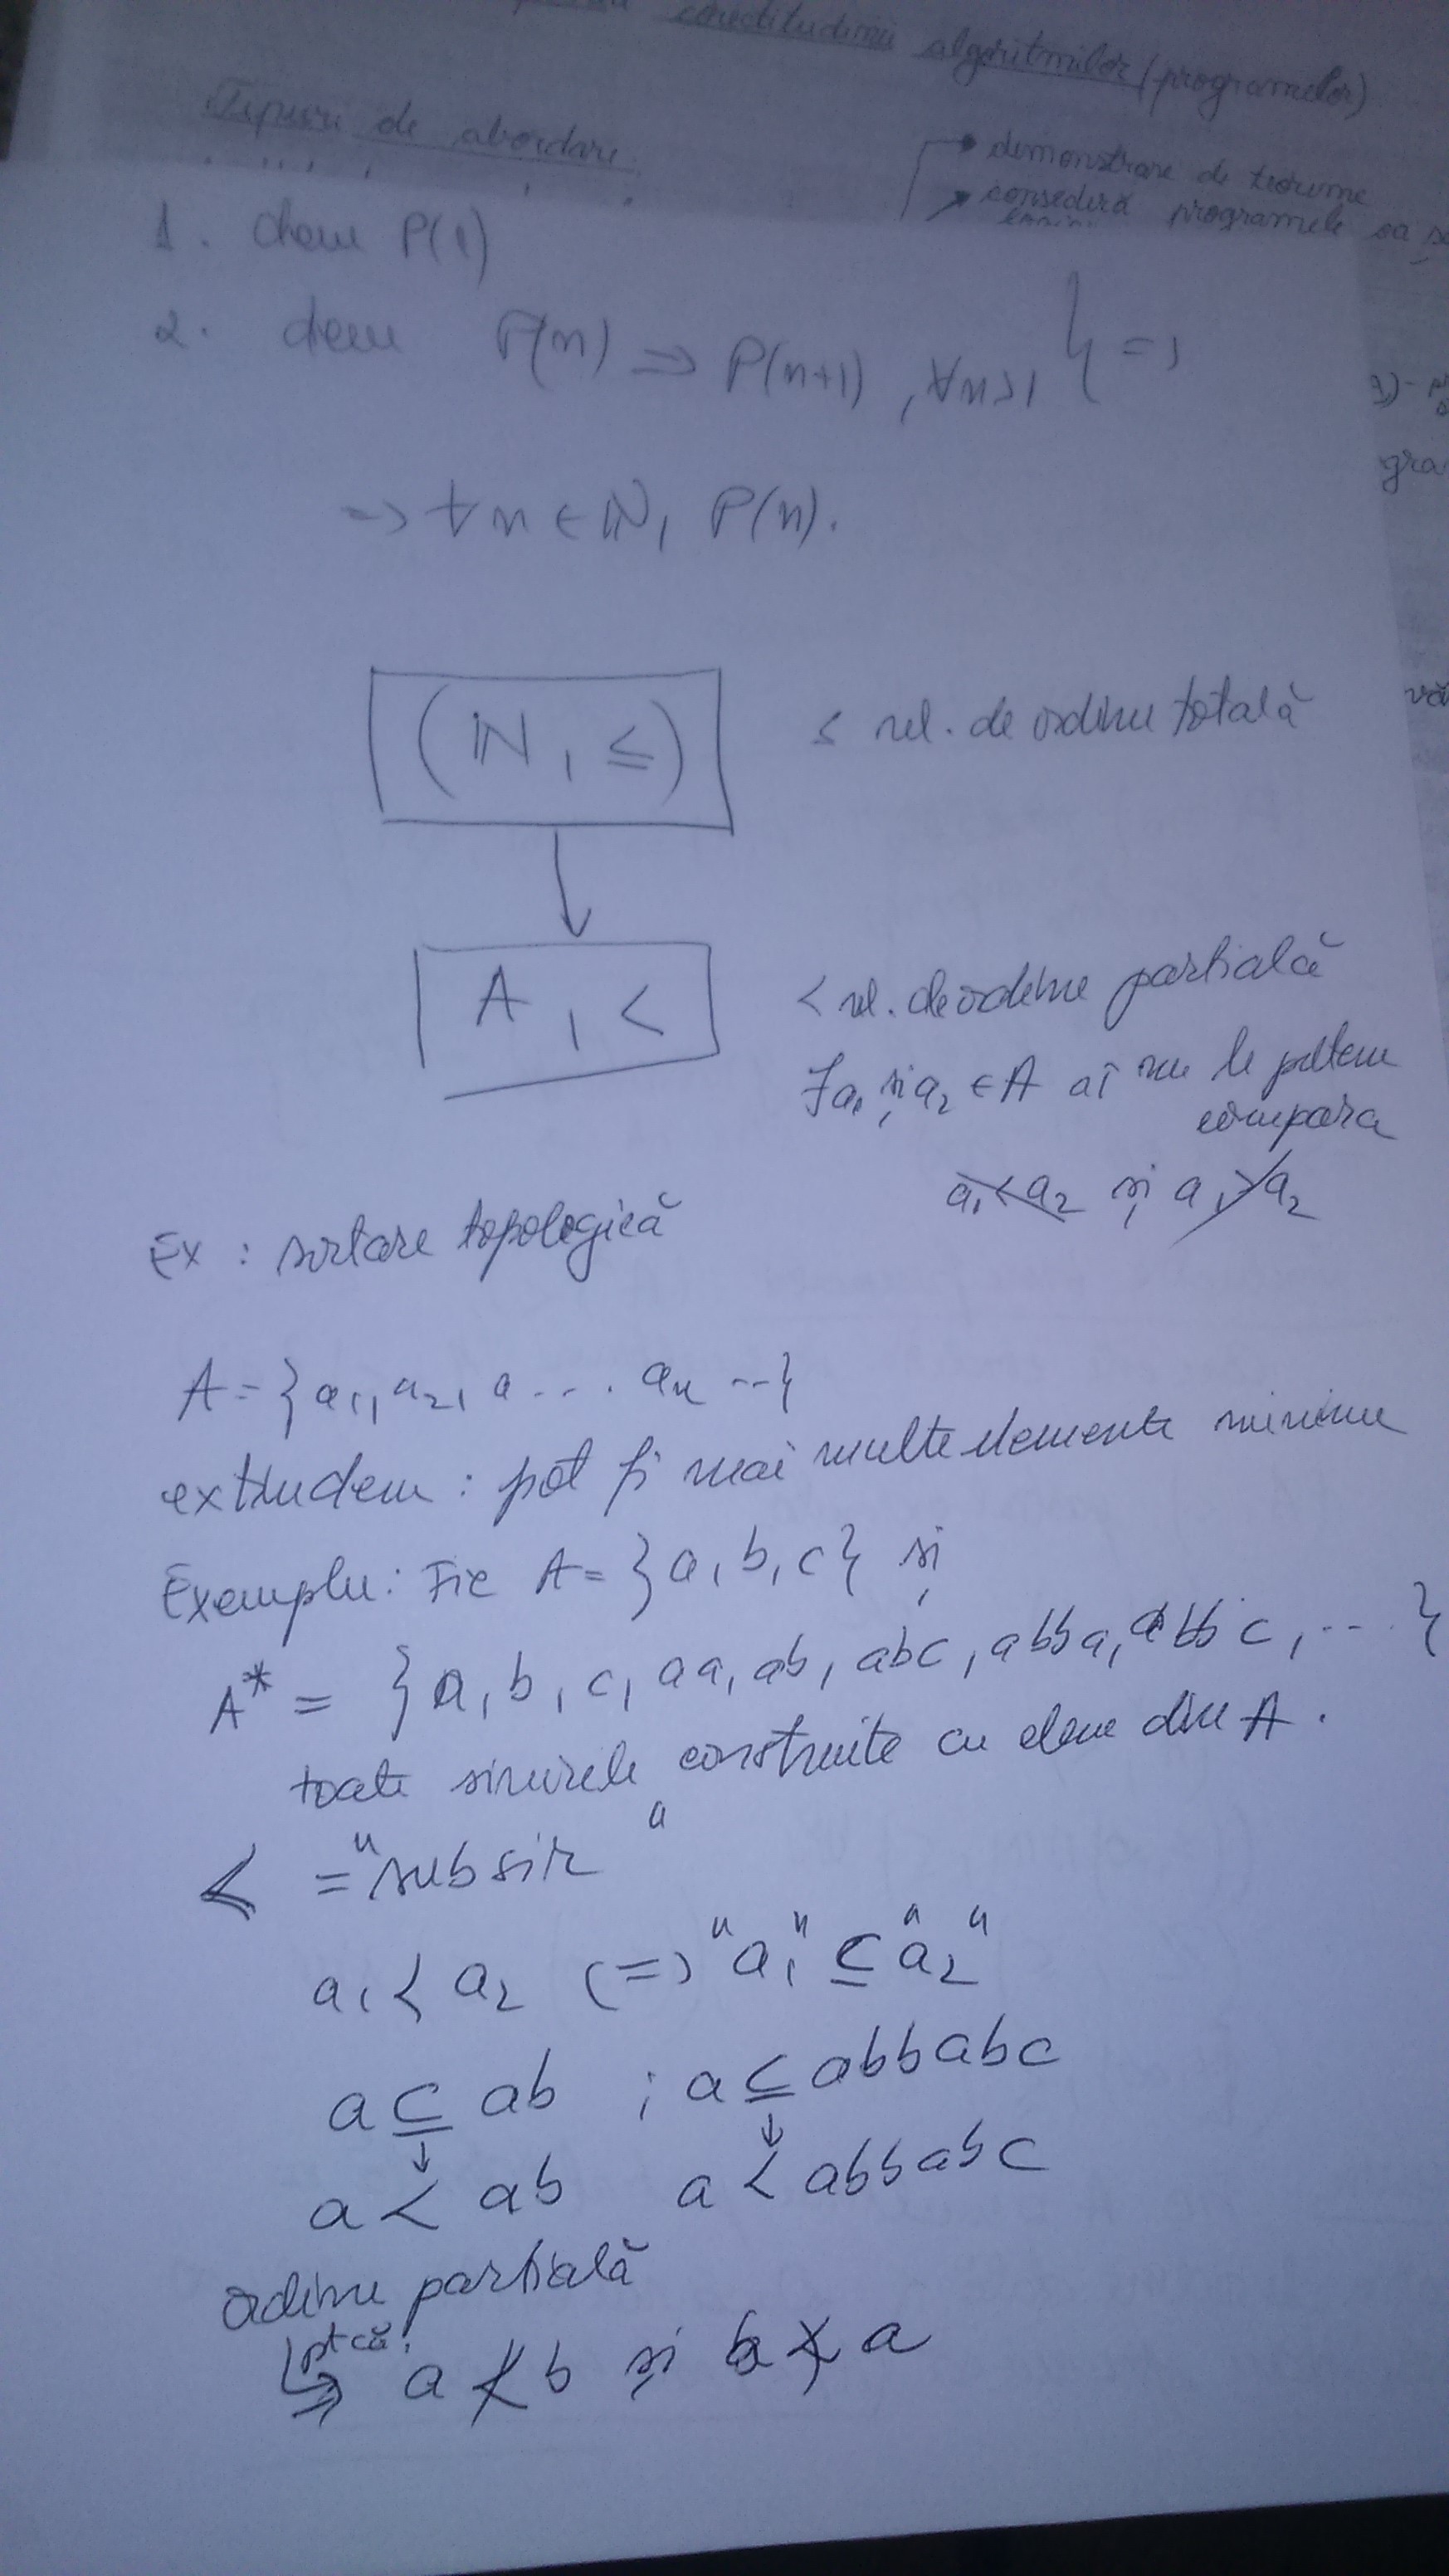 corectitudinii algoritmilor (programelor)
Tipuri de abordare
demonstrare de teoreme
consideră programele ca
1. dem P(1)
2. dem P(n) => P(n+1), ∀n≥1 } =>
=> ∀n ∈ ℕ, P(n).
gra
(ℕ, ≤)
≤ rel. de ordine totală
A, <
< rel. de ordine parțială
∃ a₁ și a₂ ∈ A aî nu le putem
compara
a₁ < a₂ și a₁ > a₂
Ex: sortare topologică
A = {a₁, a₂, a ... aₙ ...}
extindem: pot fi mai multe elemente minime
Exemplu: Fie A = {a, b, c} și
A* = {a, b, c, aa, ab, abc, abba, abbc, ...}
toate sirurile construite cu elem din A.
< = "subsir"
a₁ < a₂ (=) "a₁" ⊆ "a₂"
a ⊆ ab ; a ⊆ abbabc
↓ ↓
a < ab a < abbabc
ordine parțială
↳ pt că:
=> a ≮ b și b ≮ a